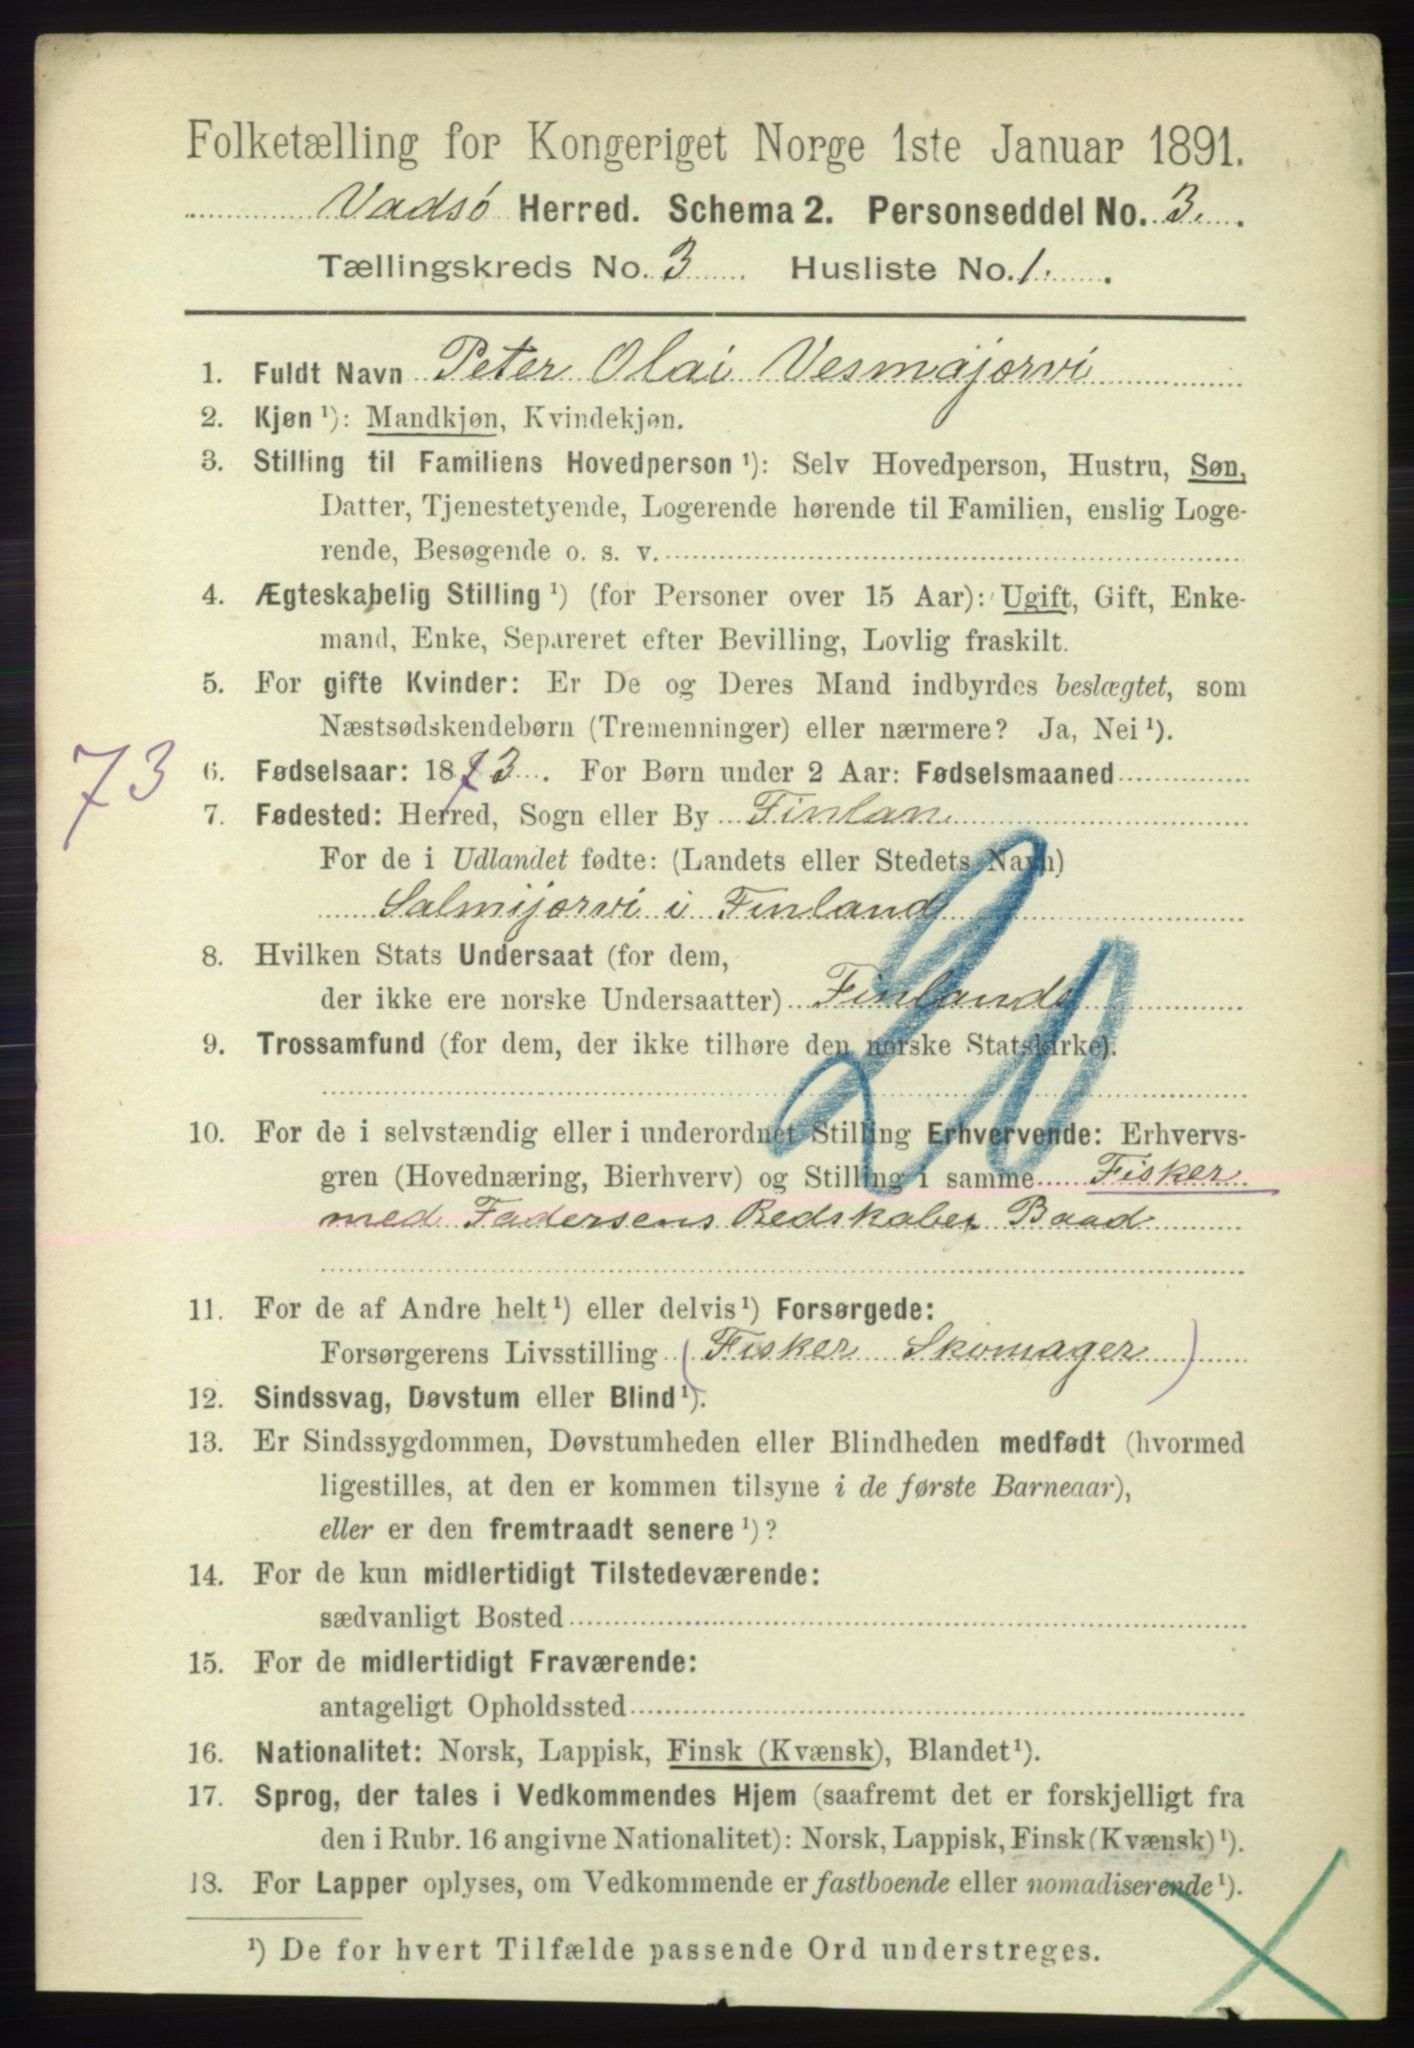 Folketælling for Kongeriget Norge 1ste Januar 1891.
Vadsø Herred. Schema 2. Personseddel No. 3.
Tællingskreds No. 3 Husliste No. 1.
1. Fuldt Navn Peter Olai Vesmajorvi
2. Kjøn ¹): Mandkjøn, Kvindekjøn.
3. Stilling til Familiens Hovedperson ¹): Selv Hovedperson, Hustru, Søn,
Datter, Tjenestetyende, Logerende hørende til Familien, enslig Loge-
rende, Besøgende o. s. v.
4. Ægteskabelig Stilling ¹) (for Personer over 15 Aar): Ugift, Gift, Enke-
mand, Enke, Separeret efter Bevilling, Lovlig fraskilt.
5. For gifte Kvinder: Er De og Deres Mand indbyrdes beslægtet, som
Næstsødskendebørn (Tremenninger) eller nærmere? Ja, Nei ¹).
73 6. Fødselsaar: 1873. For Børn under 2 Aar: Fødselsmaaned
7. Fødested: Herred, Sogn eller By Finlan
For de i Udlandet fødte: (Landets eller Stedets Navn)
Salmijorvi i Finland
8. Hvilken Stats Undersaat (for dem,
der ikke ere norske Undersaatter) Finlands
20
9. Trossamfund (for dem, der ikke tilhøre den norske Statskirke).
10. For de i selvstændig eller i underordnet Stilling Erhvervende: Erhvervs-
gren (Hovednæring, Bierhverv) og Stilling i samme Fisker
med Fadersens Redskaber Baad
11. For de af Andre helt ¹) eller delvis ¹) Forsørgede:
Forsørgerens Livsstilling (Fisker Skomager)
12. Sindssvag, Døvstum eller Blind ¹).
13. Er Sindssygdommen, Døvstumheden eller Blindheden medfødt (hvormed
ligestilles, at den er kommen tilsyne i de første Barneaar),
eller er den fremtraadt senere ¹)?
14. For de kun midlertidigt Tilstedeværende:
sædvanligt Bosted
15. For de midlertidigt Fraværende:
antageligt Opholdssted
16. Nationalitet: Norsk, Lappisk, Finsk (Kvænsk), Blandet ¹).
17. Sprog, der tales i Vedkommendes Hjem (saafremt det er forskjelligt fra
den i Rubr. 16 angivne Nationalitet): Norsk, Lappisk, Finsk (Kvænsk) ¹).
18. For Lapper oplyses, om Vedkommende er fastboende eller nomadiserende ¹).
¹) De for hvert Tilfælde passende Ord understreges.